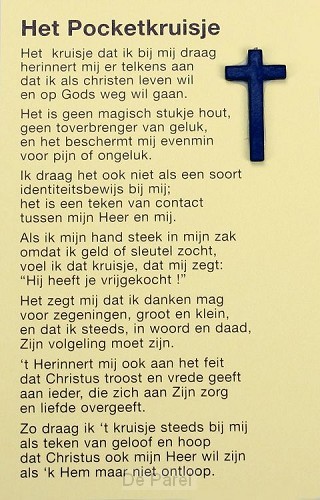 Het Pocketkruisje
Het kruisje dat ik bij mij draag
herinnert mij er telkens aan
dat ik als christen leven wil
en op Gods weg wil gaan.
Het is geen magisch stukje hout,
geen toverbrenger van geluk,
en het beschermt mij evenmin
voor pijn of ongeluk.
Ik draag het ook niet als een soort
identiteitsbewijs bij mij;
het is een teken van contact
tussen mijn Heer en mij.
Als ik mijn hand steek in mijn zak
omdat ik geld of sleutel zocht,
voel ik dat kruisje, dat mij zegt:
“Hij heeft je vrijgekocht !”
Het zegt mij dat ik danken mag
voor zegeningen, groot en klein,
en dat ik steeds, in woord en daad,
Zijn volgeling moet zijn.
‘t Herinnert mij ook aan het feit
dat Christus troost en vrede geeft
aan ieder, die zich aan Zijn zorg
en liefde overgeeft.
Zo draag ik ‘t kruisje steeds bij mij
als teken van geloof en hoop
dat Christus ook mijn Heer wil zijn
als ‘k Hem maar niet ontloop.
De Parel